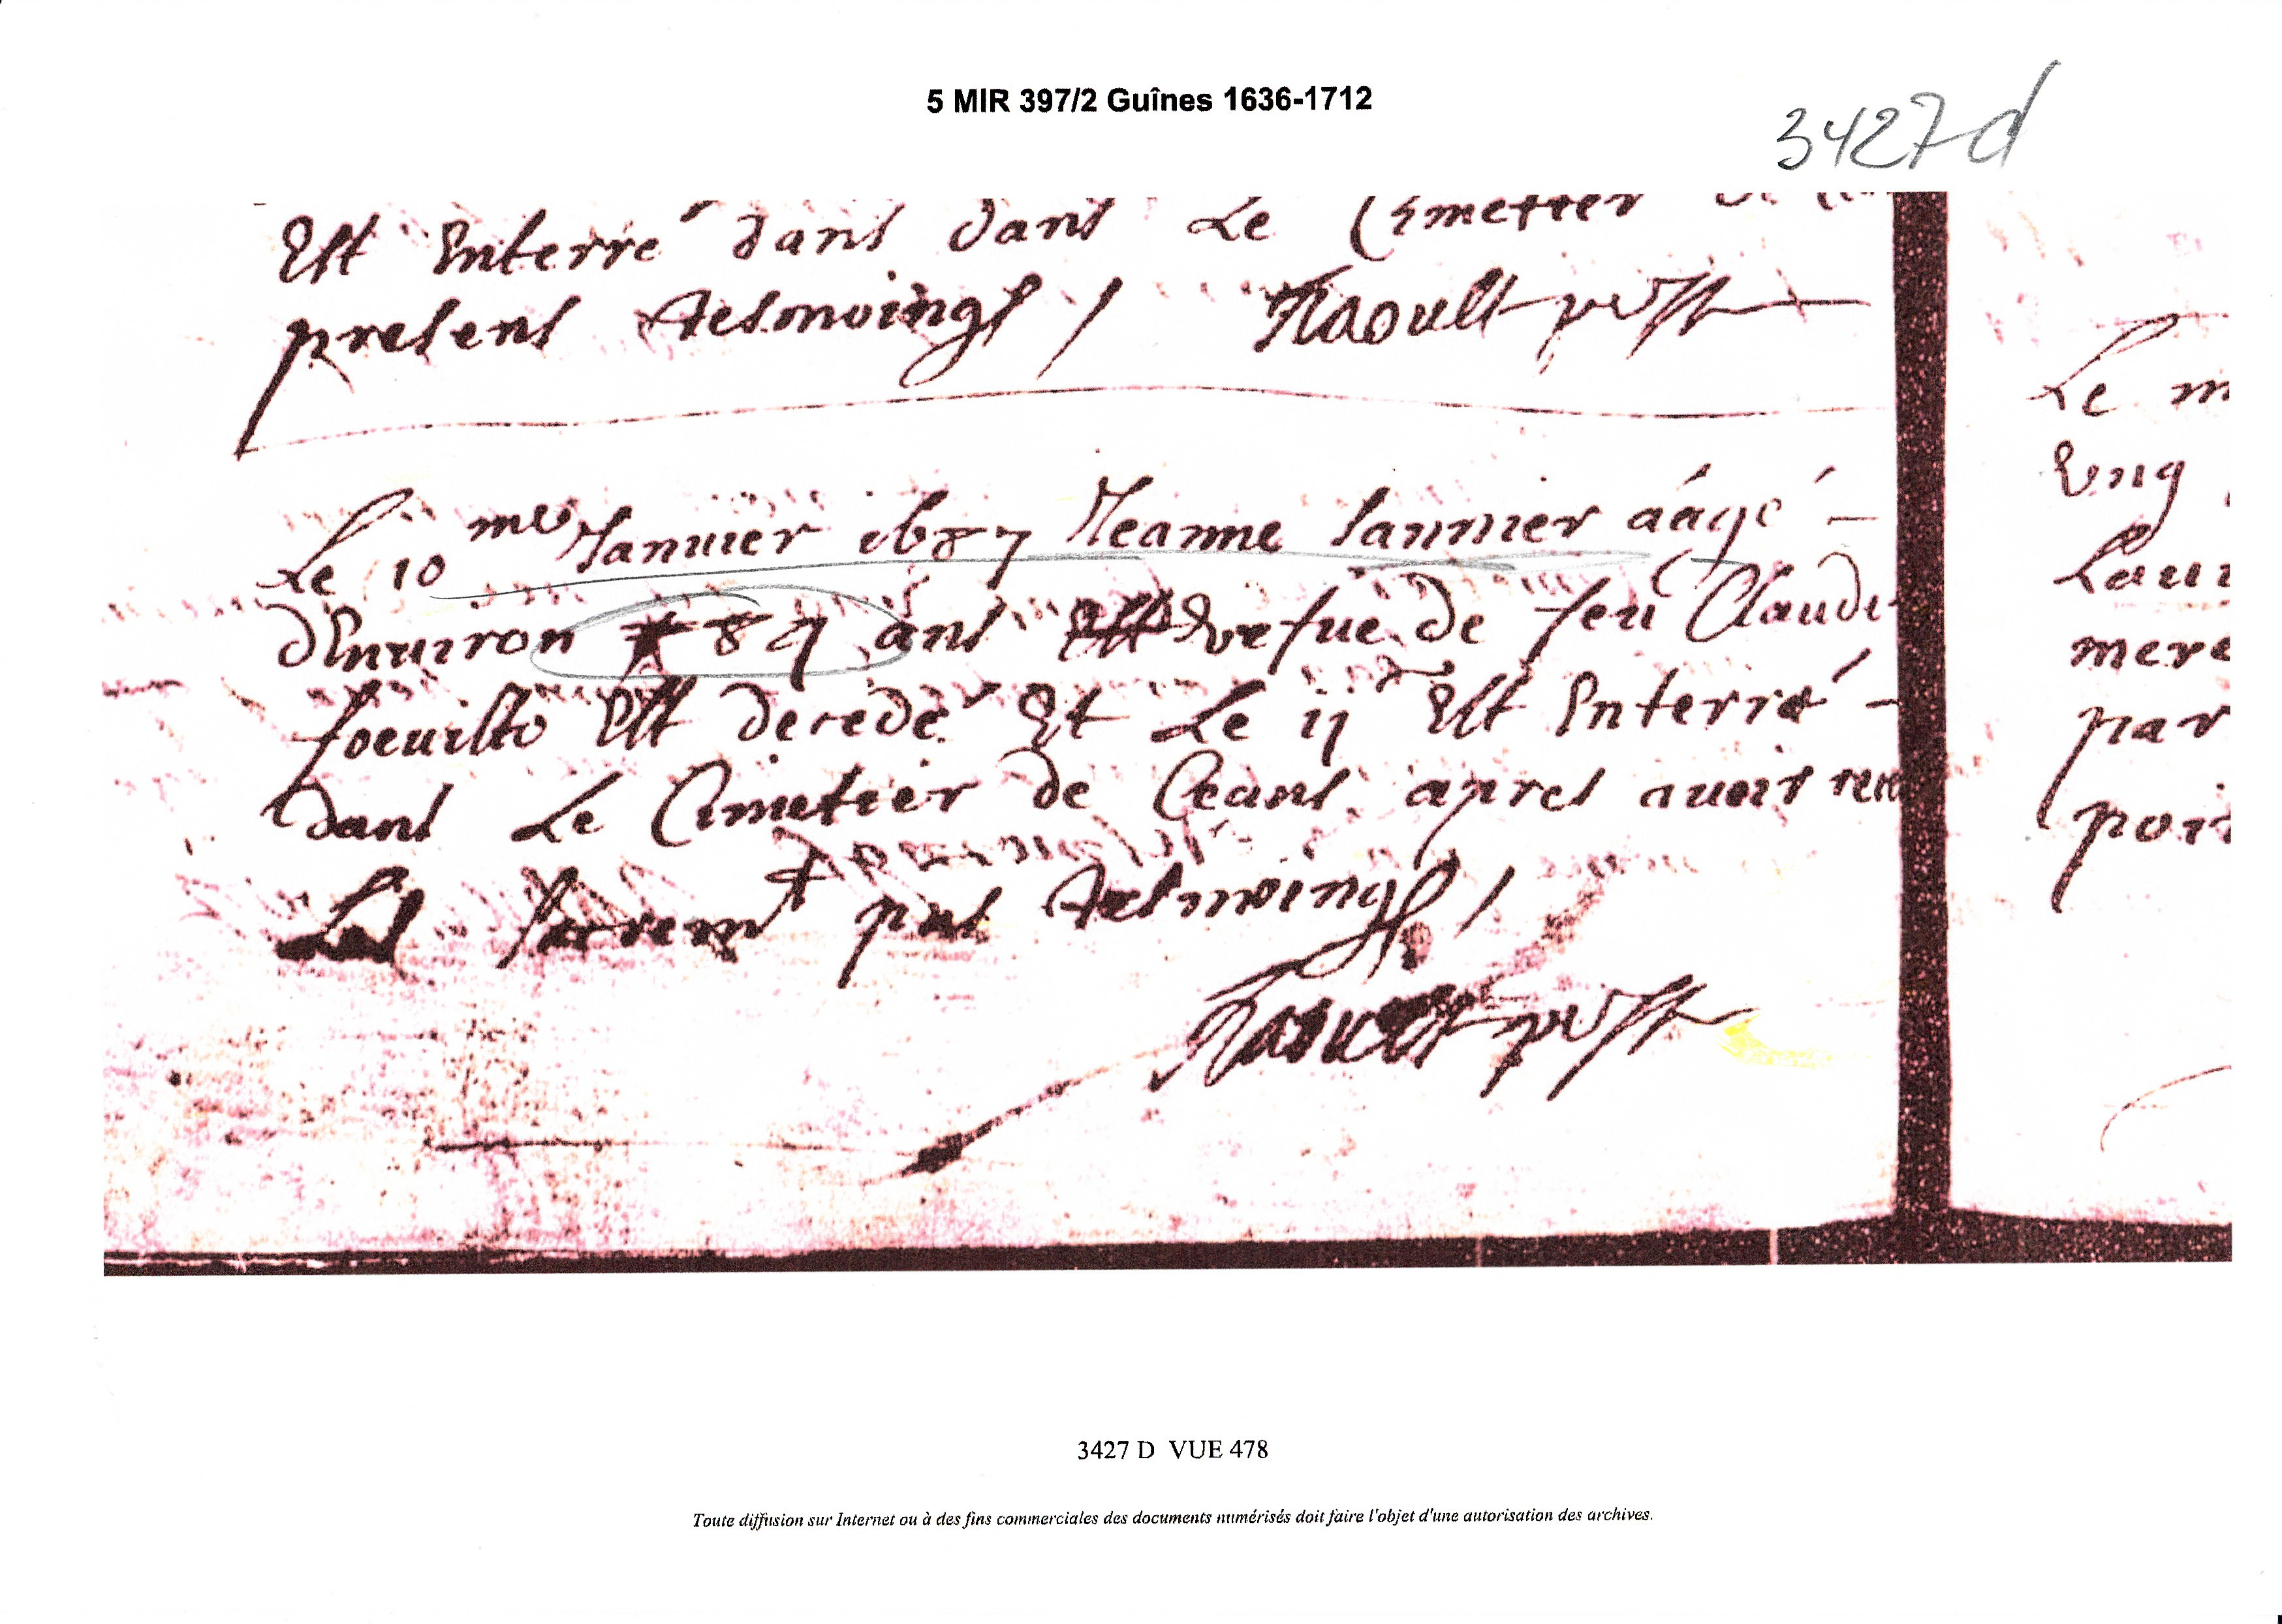 5 MIR 397/2 Guînes 1636-1712
3427d
Est Enterré dans dans Le Cimetier
presens tesmoings / Raoult pbstr
Le 10me Januier 1687 Jeanne Lannier áagé -
dEnuiron 89 ans vefue de feu Claude
Est decede Et Le 11 Est Enterré -
dans Le Cimetier de Ceans apres auoir
Les Sacremt pnt tesmoings /
Raoult pbstr
Le m
Ung
mere
par
3427 D VUE 478
Toute diffusion sur Internet ou à des fins commerciales des documents numérisés doit faire l'objet d'une autorisation des archives.